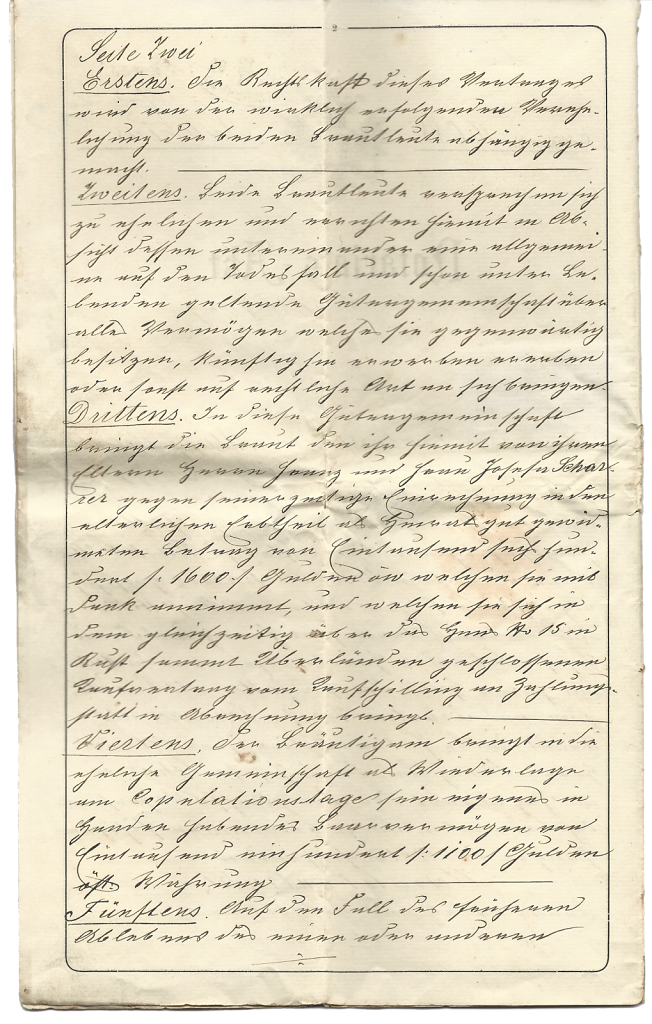 2
Seite Zwei
Erstens. Die Rechtskraft dieses Vertrages
wird von der wirklich erfolgenden Vereh-
lichung der beiden Brautleute abhängig ge-
macht.
Zweitens. Beide Brautleute versprechen sich
zu ehelichen und errichten hiemit in Ab-
sicht dessen untereinander eine allgemei-
ne auf den Todesfall und schon unter Le-
benden geltende Gütergemeinschaft über
alles Vermögen welches sie gegenwärtig
besitzen, künftighin erwerben ererben
oder sonst auf rechtliche Art an sich bringen.
Drittens. In diese Gütergemeinschaft
bringt die Braut den ihr hiemit von ihren
Eltern Herrn Franz und Frau Josefa Schar-
rer gegen seinerzeitige Einrechnung in den
elterlichen Erbtheil als Heiratsgut gewid-
meten Betrag von Eintausend sechshun-
dert /: 1600 :/ Gulden öW welchen sie mit
Dank annimmt, und welchen sie sich in
dem gleichzeitig über das Haus No 15 in
Rust sammt Überländen geschlossenen
Kaufvertrag vom Kaufschilling an Zahlungs-
statt in Abrechnung bringt.
Viertens. Der Bräutigam bringt in die
eheliche Gemeinschaft als Wiederlage
am Copulationstage sein eigenes in
Handen habendes Baarvermögen von
Eintausend einhundert /: 1100 :/ Gulden
öst. Währung
Fünftens. Auf den Fall des früheren
Ablebens des einen oder anderen